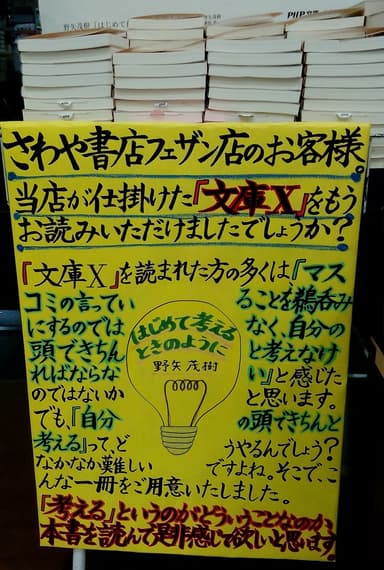 野矢茂樹『はじめて
PHP
さわや書店フェザン店のお客様。
当店が仕掛けた『文庫X』をもう
お読みいただけましたでしょうか？
『文庫X』を読まれた方の多くは『マス
コミの言ってい ることを鵜呑み
にするのでは なく、自分の
頭できちん と考えなけ
ればならな い』と感じた
のではないか と思います。
でも、『自分 の頭できちんと
考える』って、ど うやるんでしょう？
なかなか難しい ですよね。そこで、こ
んな一冊をご用意いたしました。
はじめて考える
ときのように
野矢茂樹
『考える』というのがどういうことなのか、
本書を読んで是非感じて欲しいと思います。